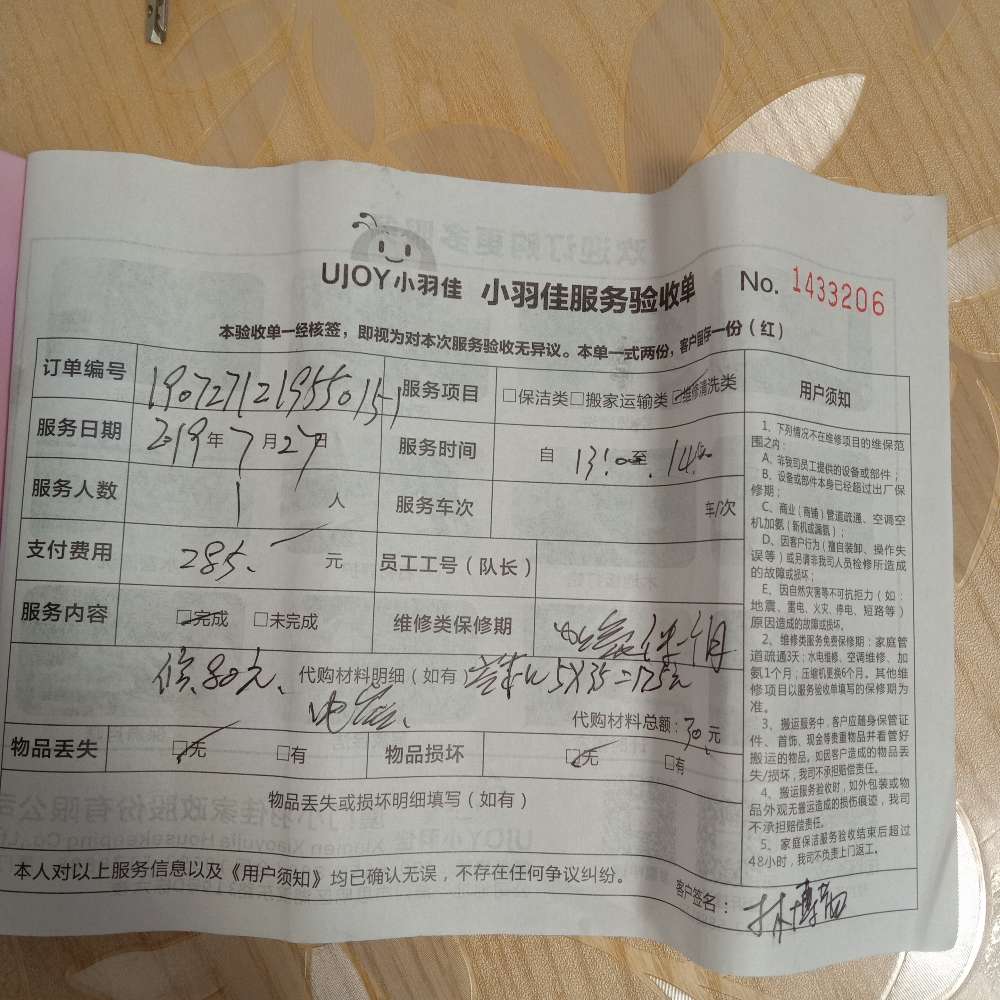 UJOY小羽佳 小羽佳服务验收单 No. 1433206
本验收单一经核签，即视为对本次服务验收无异议。本单一式两份，客户留存一份（红）
订单编号 服务项目 □保洁类□搬家运输类☑维修清洗类
服务日期 2019年7月27日 服务时间 自 13:00至 14:00
服务人数 1 人 服务车次 车/次
支付费用 285. 元 员工工号（队长）
服务内容 ☑完成 □未完成 维修类保修期
80元、代购材料明细（如有） 5X35=175元
代购材料总额：30元
物品丢失 ☑无 □有 物品损坏 ☑无 □有
物品丢失或损坏明细填写（如有）
本人对以上服务信息以及《用户须知》均已确认无误，不存在任何争议纠纷。
客户签名：林博
用户须知
1、下列情况不在维修项目的维保范
围之内：
A、非我司员工提供的设备或部件；
B、设备或部件本身已经超过出厂保
修期；
C、商业（商铺）管道疏通、空调空
机加氨（新机或漏氨）；
D、因客户行为（擅自装卸、操作失
误等）或另请非我司人员检修所造成
的故障或损坏；
E、因自然灾害等不可抗拒力（如：
地震、雷电、火灾、停电、短路等）
原因造成的故障或损坏。
2、维修类服务免费保修期：家庭管
道疏通3天；水电维修、空调维修、加
氨1个月；压缩机更换6个月。其他维
修项目以服务验收单填写的保修期为
准。
3、搬运服务中，客户应随身保管证
件、首饰、现金等贵重物品并看管好
搬运的物品。如因客户造成的物品丢
失/损坏，我司不承担赔偿责任。
4、搬运服务验收时，如外包装或物
品外观无搬运造成的损伤痕迹，我司
不承担赔偿责任。
5、家庭保洁服务验收结束后超过
48小时，我司不负责上门返工。